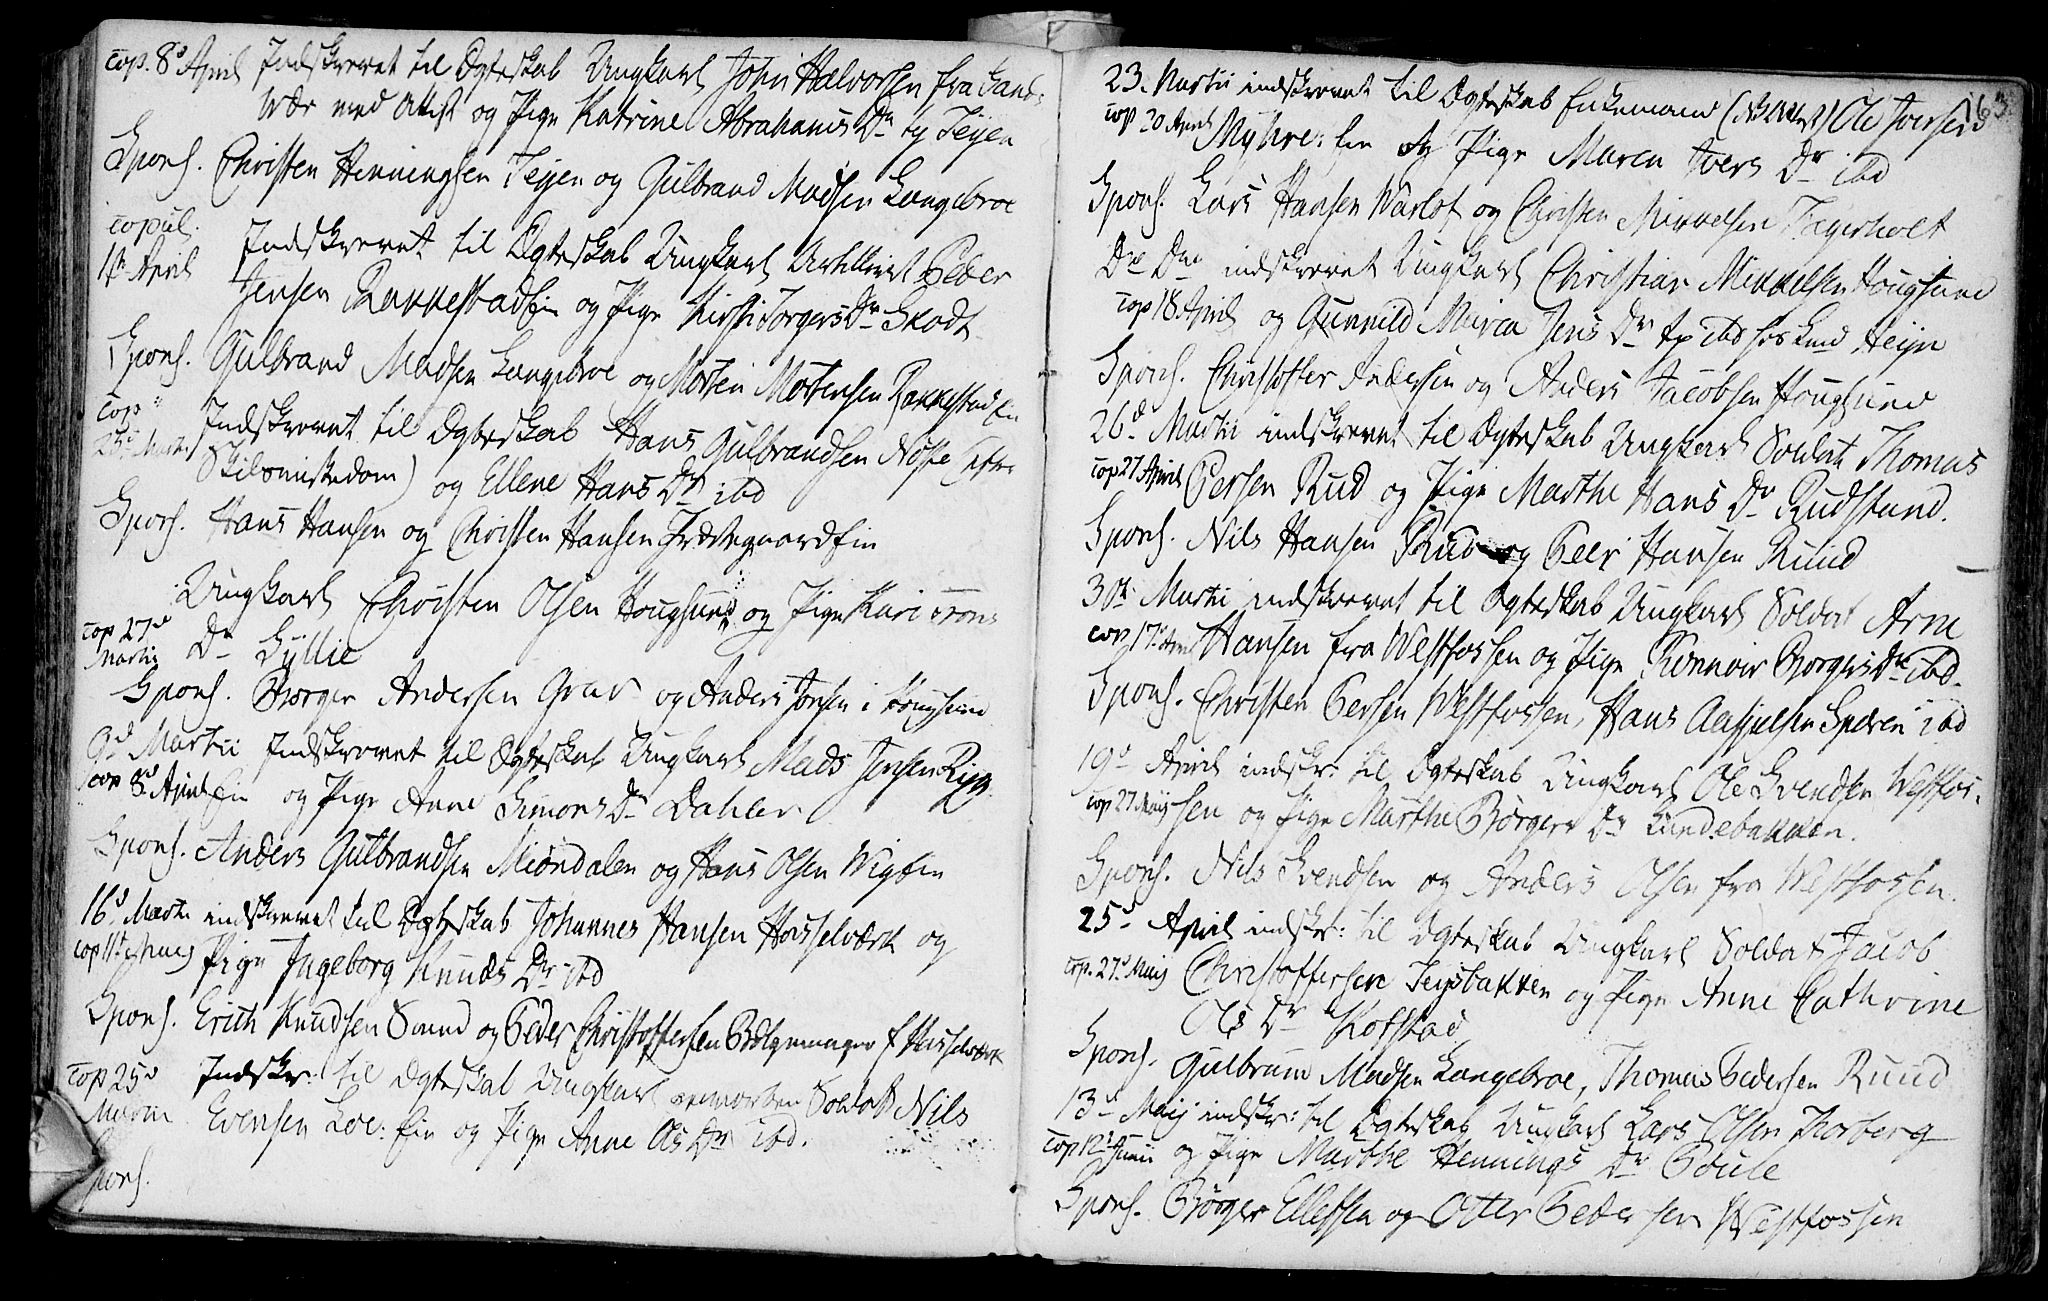 cop. 8de April Indskrevet til Ægteskab Ungkarl John Halvorsen fra Sand-
wær med Attest og Pige Katrine Abrahams Dr og Teijen
Spons. Christen Henningsen Teijen og Gulbrand Madsen Langebroe
copul. Indskrevet til Ægteskab Ungkarl Artillerist Peder
April Jensen Rakkestad Ein og Pige Kirsti Torgers Dr Skodt
Spons. Gulbrand Madsen Langebroe og Morten Mortensen Rakkestad Ein
cop Indskrevet til Ægteskab Hans Gulbrandsen Nøste (efter
25de Martii Skilsmissedom) og Ellene Hans Dr ibd
Spons. Hans Hansen og Christen Hansen Præstegaard Ein
Ungkarl Christen Olsen Hougsund og Pige Kari Trons
cop 27de Martii Dr Gyllie
Spons. Børger Andersen Grav og Anders Jonsen i Hougsund
9d Martii Indskrevet til Ægteskab Ungkarl Mads Jensen Rygg
cop 8de April Ein og Pige Anne Simons Dr Dahler
Spons. Anders Gulbrandsen Miøndalen og Hans Olsen Wig Ein
16d Martii indskrevet til Ægteskab Johannes Hansen Hasselværk og
cop 11te Pige Ingeborg Knuds Dr ibd
Spons. Erich Knudsen Sand og Peder Christophersen Bælgemager f Hasselværk
cop 25d Indskr: til Ægteskab Ungkarl Soldat Nils
Martii Evensen Loe: Ein og Pige Anne Ols Dr ibd.
Spons.
163
23. Martii indskrevet til Ægteskab Enkemand (NB Attest) Ole Iversen
cop 20 April Myhre: Ein og Pige Maren Ivers Dr ibd
Spons. Lars Hansen Warlof og Christen Mikkelsen Fagerholt
Do Do indskrevet Ungkarl Christian Mikkelsen Hougsund
cop 18 April og Gunnild Maria Jens Dr ibd hos Heijn
Spons. Christoffer Andersen og Anders Jacobsen Hougsund
26d Martii indskrevet til Ægteskab Ungkarl Soldat Thomas
cop 27 April Persen Rud og Pige Marthe Hans Dr Rudstrand.
Spons. Nils Hansen Rud og Peer Hansen Ruud
30te Martii indskrevet til Ægteskab Ungkarl Soldat Arne
cop 17d April Hansen fra Westfossen og Pige Rønnow Børgers Dr ibd.
Spons. Christen Persen Westfossen, Hans Aassulsen Speren ibd
19d April indskr: til Ægteskab Ungkarl Ole Svendsen Westfos-
cop 27 Maij sen og Pige Marthe Børgers Dr Lundebakken.
Spons. Nils Svendsen og Anders Olsen fra Westfossen.
25d April indskr: til Ægteskab Ungkarl Soldat Jacob
cop. 27d Maij Christoffersen Teijsbakken og Pige Anne Cathrine
Ols Dr Kolstad
Spons. Gulbrand Madsen Langebroe, Thomas Pedersen Ruud
13d Maij indskr: til Ægteskab Ungkarl Lars Olsen Thorberg
cop 12d Junii og Pige Marthe Hennings Dr Poule
Spons. Børger Ellefsen og Otter Pedersen Westfossen